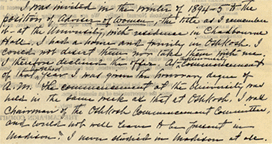 I was invited in the winter of 1894-5 to the
position of Adviser of Women, the title as I remember
it at the University, with residence in Chadbourne
Hall. I had a home and family in Oshkosh. I
could not desert them nor take them with me.
I therefore declined the offer. At Commencement
of that year I was given the honorary degree of
A.M. The commencement at the University was
held in the same week as that at Oshkosh. I was
Chairman of the Oshkosh Commencement Committee,
and could not well leave to be present in
Madison. I have studied in Madison at all